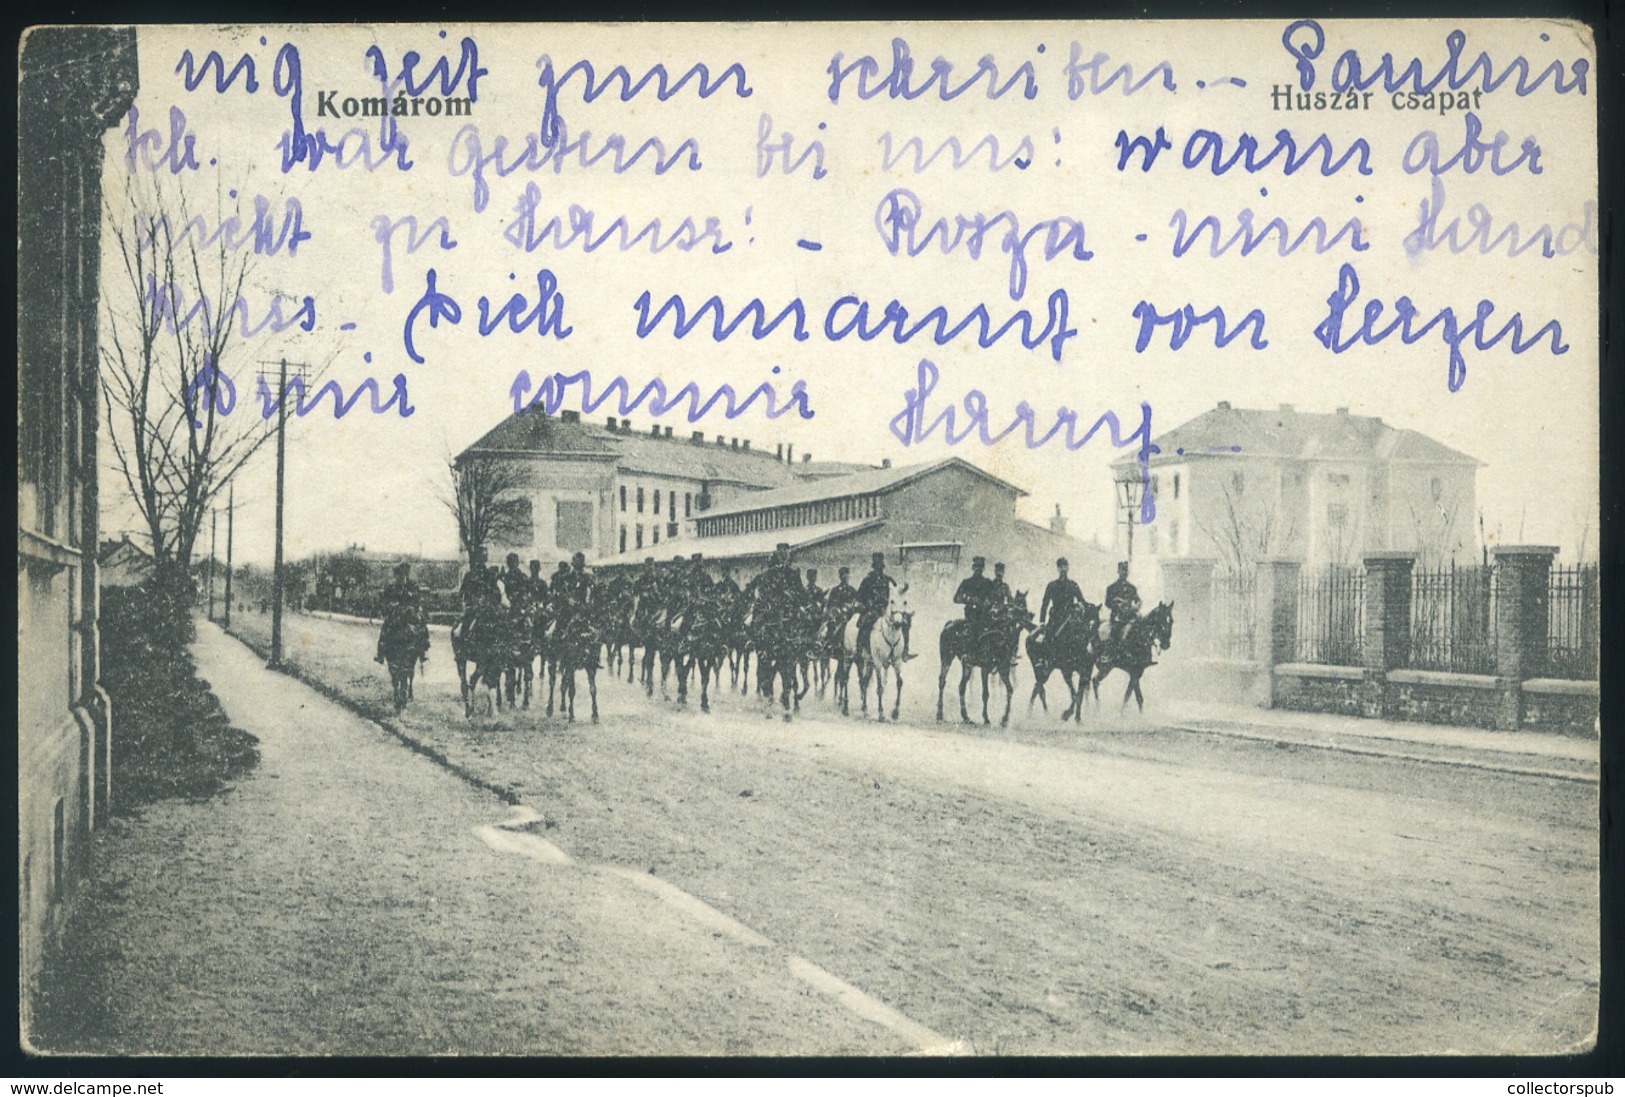 nig zeit zum schreiben.- Pauline
Komárom
Huszár csapat
Ich. war gestern bei uns! warrn aber
nicht zu Hause! - Rosza - nini Hand
kuss - Dich umarmt von Herzen
Deine cousine Harry.-
delcampe.net
collectorspub